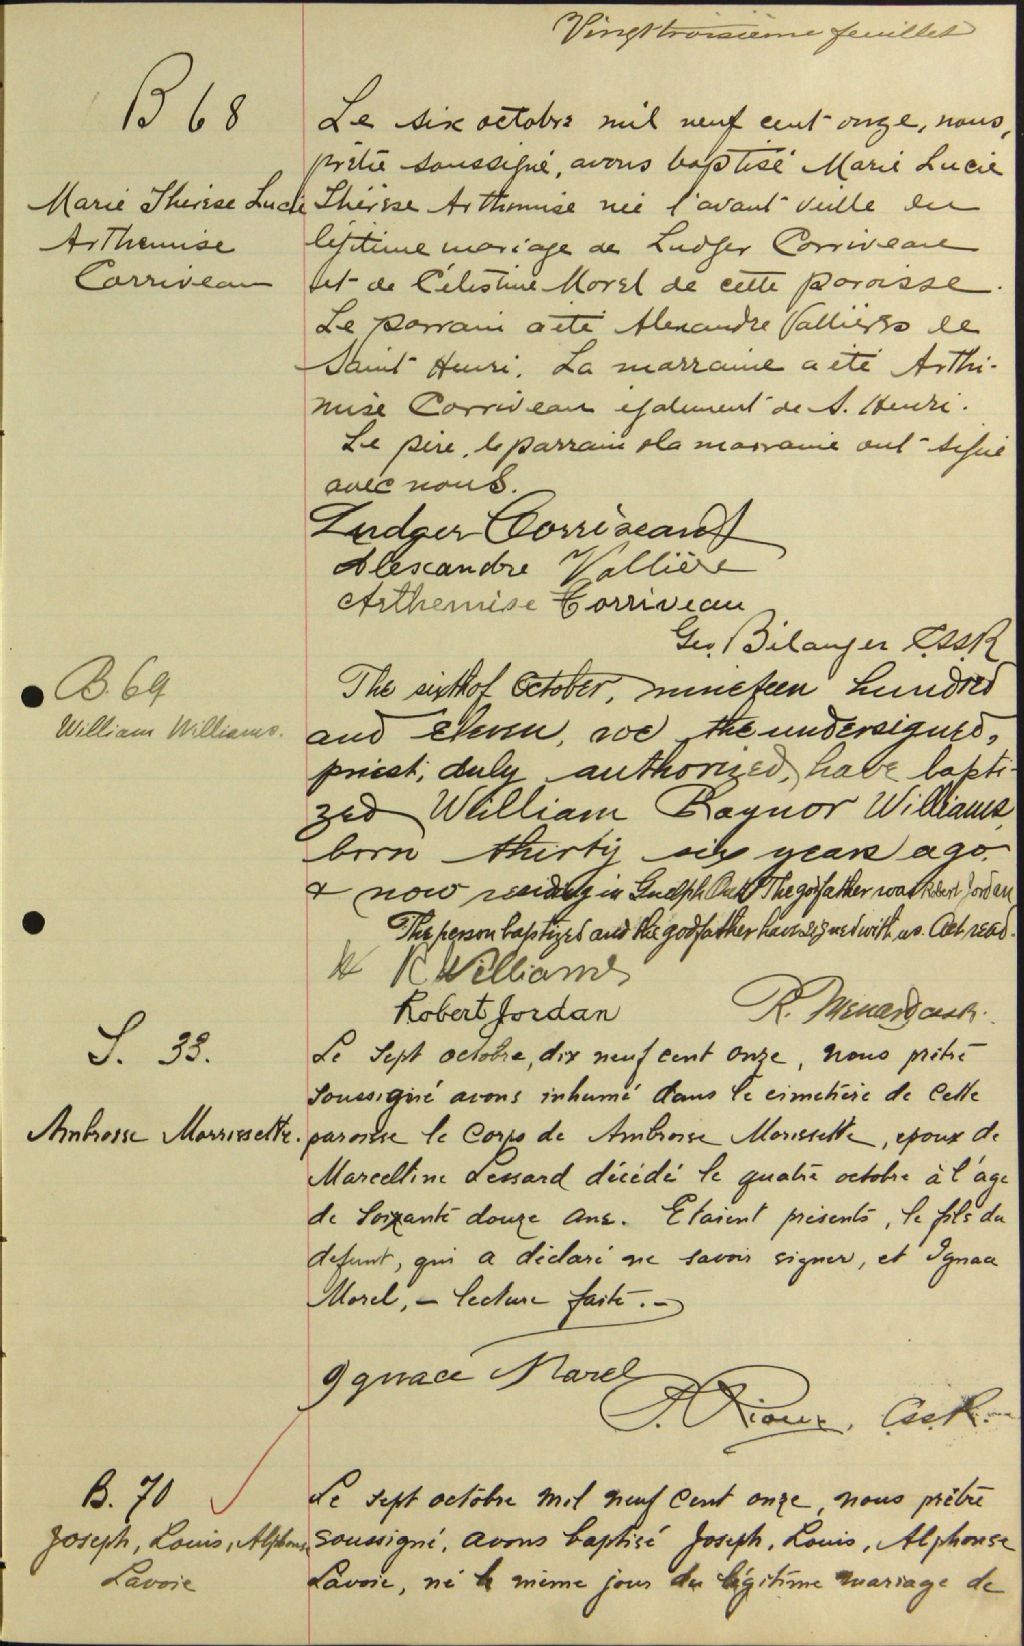 Vingt troisième feuillet
B 68
Marie Thérèse Lucie
Arthemise
Corriveau
Le six octobre mil neuf cent onze, nous,
prêtre soussigné, avons baptisé Marie Lucie
Thérèse Arthemise née l'avant veille du
légitime mariage de Ludger Corriveau
et de Célestine Morel de cette paroisse.
Le parrain a été Alexandre Vallières de
Saint Henri. La marraine a été Arthé-
mise Corriveau également de S. Henri.
Le père, le parrain & la marraine ont signé
avec nous.
Ludger Corriveau
Alexandre Vallière
Arthemise Corriveau
Geo. Bélanger C.SS.R
B. 69
William Williams.
The sixth of October, nineteen hundred
and eleven, we the undersigned,
priest, duly authorized, have bapti-
zed William Raynor Williams,
born thirty six years ago.
& now residing in Guelph Ont. The godfather was Robert Jordan
The person baptized and the godfather have signed with us. Act read.
W R Williams
Robert Jordan
R. Menard cssr.
S. 33.
Ambroise Morrissette.
Le sept octobre, dix neuf cent onze, nous prêtre
soussigné avons inhumé dans le cimetière de cette
paroisse le corps de Ambroise Morissette, epoux de
Marcelline Lessard décédé le quatre octobre à l'age
de soixante douze ans. Etaient présents, le fils du
defunt, qui a déclaré ne savoir signer, et Ignace
Morel, – lecture faite. –
Ignace Marel
A. Rioux, C.ss.R.
B. 70
Joseph, Louis, Alphonse
Lavoie
Le sept octobre mil neuf cent onze, nous prêtre
soussigné, avons baptisé Joseph, Louis, Alphonse
Lavoie, né le même jour du légitime mariage de